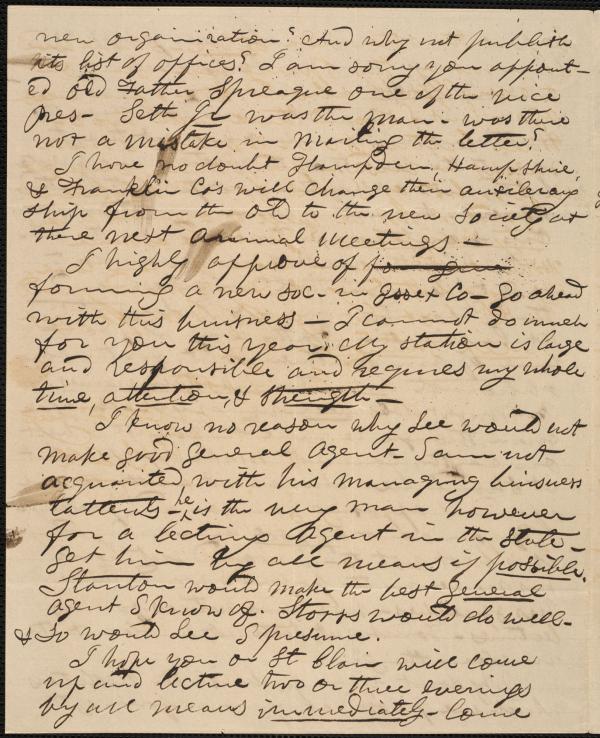 new organization? And why not publish
its list of offices? I am sorry you appoint-
ed Old Father Spreague one of the vice
Pres- Seth Jr was the man - was there
not a mistake in mailing the letter?
I have no doubt Hampden, Hampshire,
& Franklin Co's will change their auxiliary
ship from the old to the new Society at
there next annual meetings -
I highly approve of
forming a new soc. in Essex Co - go ahead
with this buisness - I cannot do much
for you this year. My station is large
and responsible and requires my whole
time, attention, & strength -
I know no reason why Lee would not
make good general agent - I am not
acquainted with his managing buisness
tattents - he is the very man however
for a lecturing agent in the state -
get him by all means if possible.
Stanton would make the best general
agent I know of. Storrs would do well -
& so would Lee I presume.
I hope you or St Clair will come
up and lecture two or three evenings
by all means immediately - Come